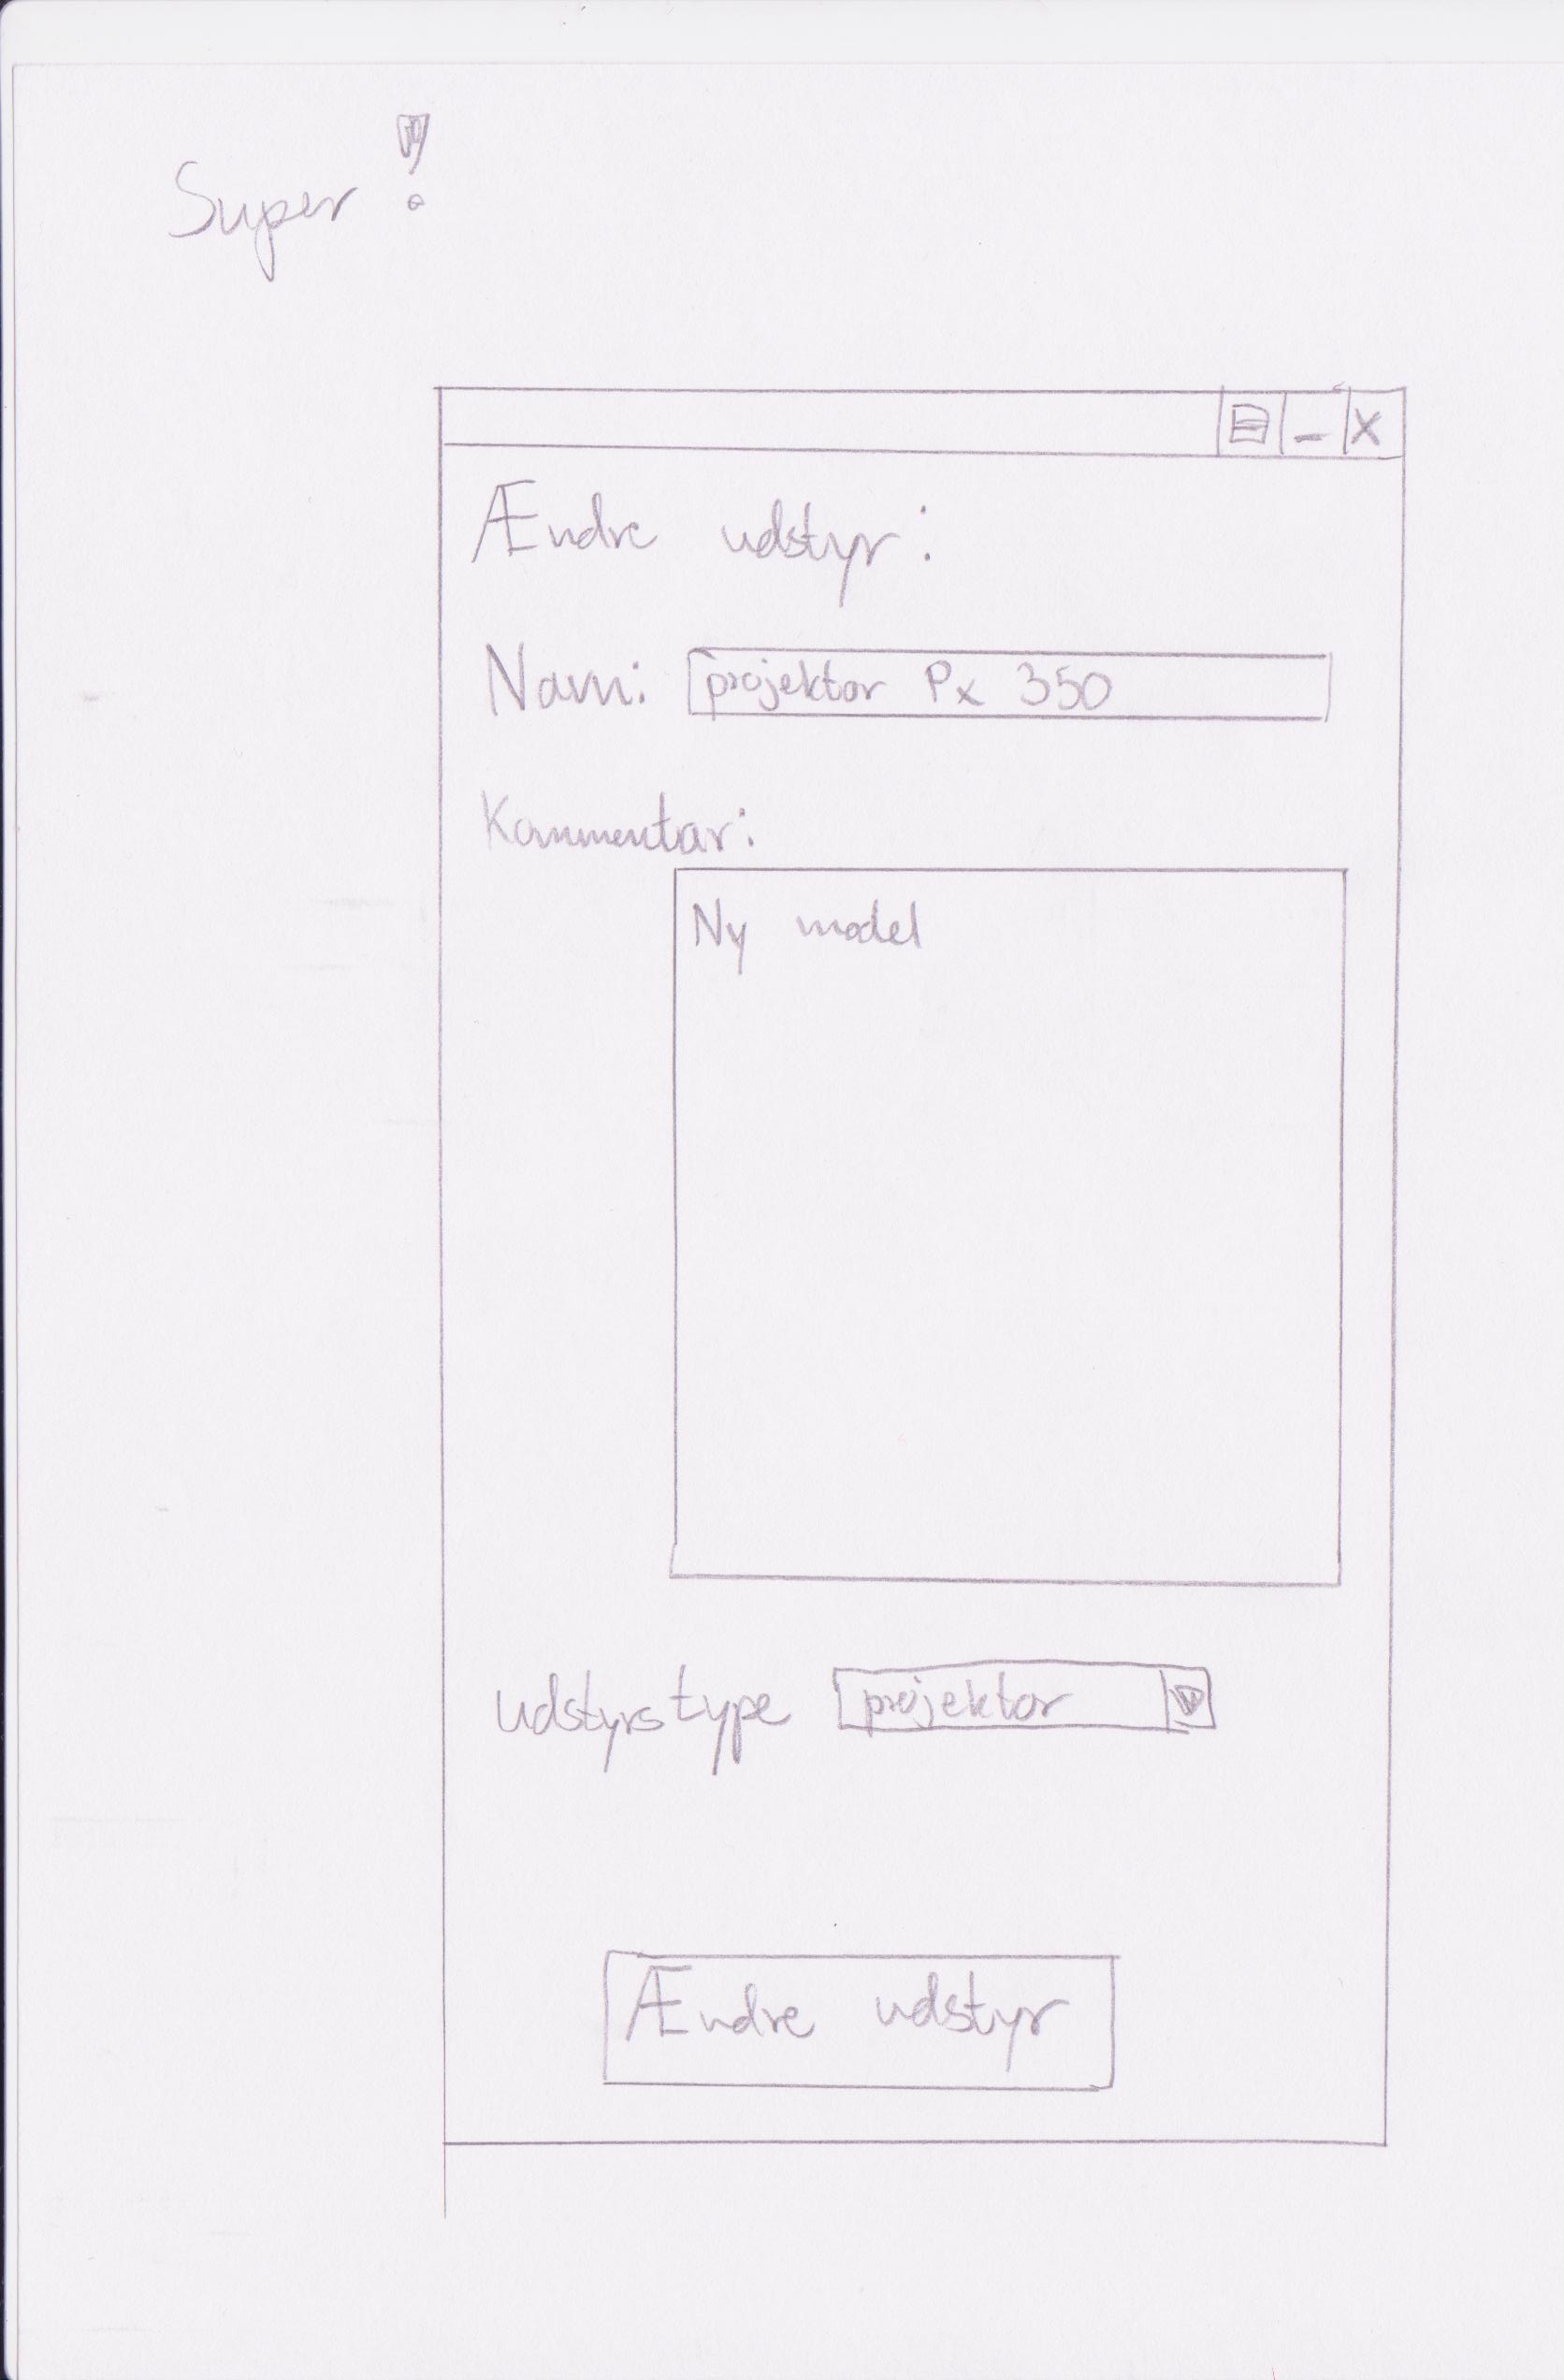 Super!
Ændre udstyr:
Navn: projektor Px 350
Kommentar:
Ny model
Udstyrstype projektor
Ændre udstyr